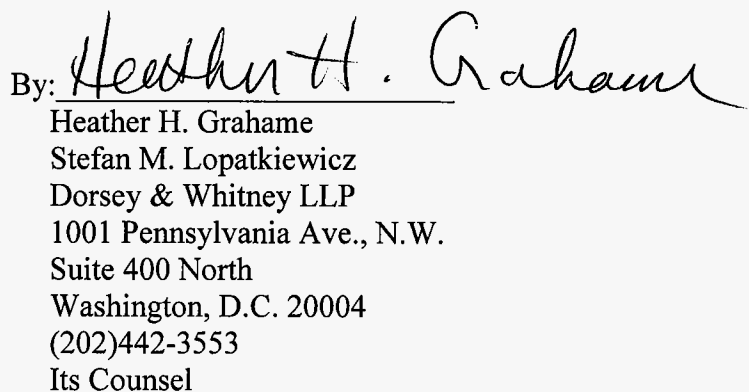 By: Heather H. Grahame
Heather H. Grahame
Stefan M. Lopatkiewicz
Dorsey & Whitney LLP
1001 Pennsylvania Ave., N.W.
Suite 400 North
Washington, D.C. 20004
(202)442-3553
Its Counsel